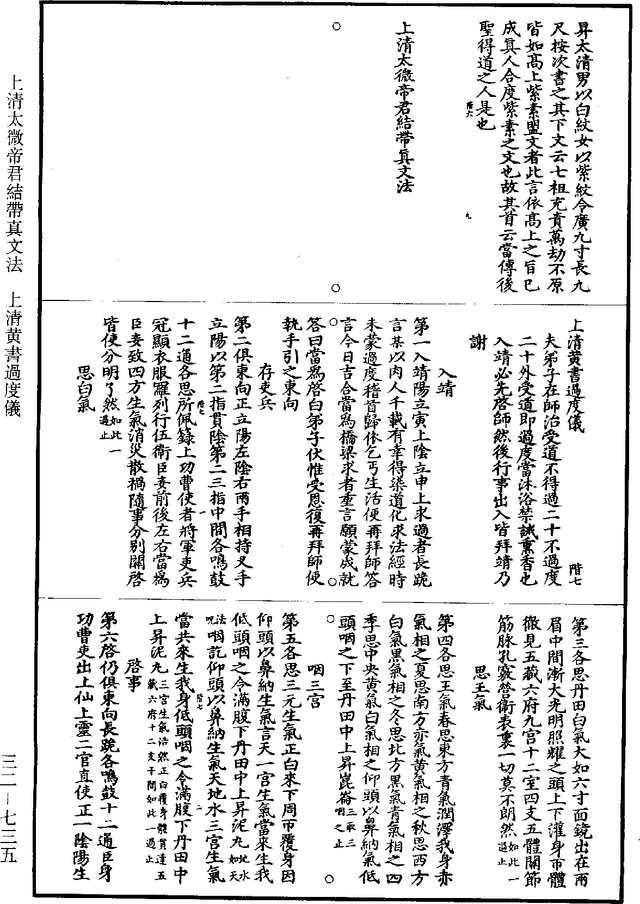 昇太清男以白紋女以紫紋令廣九寸長九
尺按次書之其下文云七祖充責萬劫不原
皆如高上紫素盟文者此言依高上之旨已
成真人合度紫素之文也故其首云當傳後
聖得道之人是也
階六
九
上清太微帝君結帶真文法
上清黃書過度儀
階七
夫弟子在師治受道不得過二十不過度
二十外受道即過度當沐浴禁誡熏香也
入靖必先啓師然後行事出入皆拜靖乃
謝
入靖
第一入靖陽立寅上陰立申上求過者長跪
言某以肉人千載有幸得染道化求法經時
未蒙過度稽首歸依乞丐生活便再拜師答
言今日吉合當為橋梁求者重言願蒙成就
答曰當為啓白弟子伏惟受恩復再拜師便
執手引之東向
存吏兵
第二俱東向正立陽左陰右兩手相持叉手
立陽以第二指貫陰第二三指中間各鳴鼓
十二通各思所佩籙上功曹使者將軍吏兵
階七
一
冠顯衣服羅列行伍衛臣妾前後左右當為
臣妾致四方生氣消災散禍隨事分別關啓
皆使分明了然如此一過止
思白氣
第三各思丹田白氣大如六寸面鏡出在兩
眉中間漸大光明照耀之頭上下灌身帀體
微見五藏六府九宮十二室四支五體關節
筋脉孔竅營衛表裏一切莫不朗然如此一過止
思王氣
第四各思王氣春思東方青氣潤澤我身赤
氣相之夏思南方赤氣黃氣相之秋思西方
白氣黑氣相之冬思北方黑氣青氣相之四
季思中央黃氣白氣相之仰頭以鼻納氣低
頭咽之下至丹田中上昇崑崙三乘三咽之止
咽三宮
第五各思三元生氣正白來下周帀覆身因
仰頭以鼻納生氣言天一宮生氣當來生我
低頭咽之令滿腹下丹田中上昇泥丸地水如天
法呪咽訖仰頭以鼻納生氣天地水三宮生氣
階七
二
當共來生我身低頭咽之令滿腹下丹田中
上昇泥丸三宮生氣浩然正白覆身體貫達五藏六府十二支干間如此一過止
啓事
第六啓仍俱東向長跪各鳴鼓十二通臣身
功曹吏出上仙上靈二官直使正一陰陽生
上清太微帝君結帶真文法　上清黃書過度儀
三二—七三五